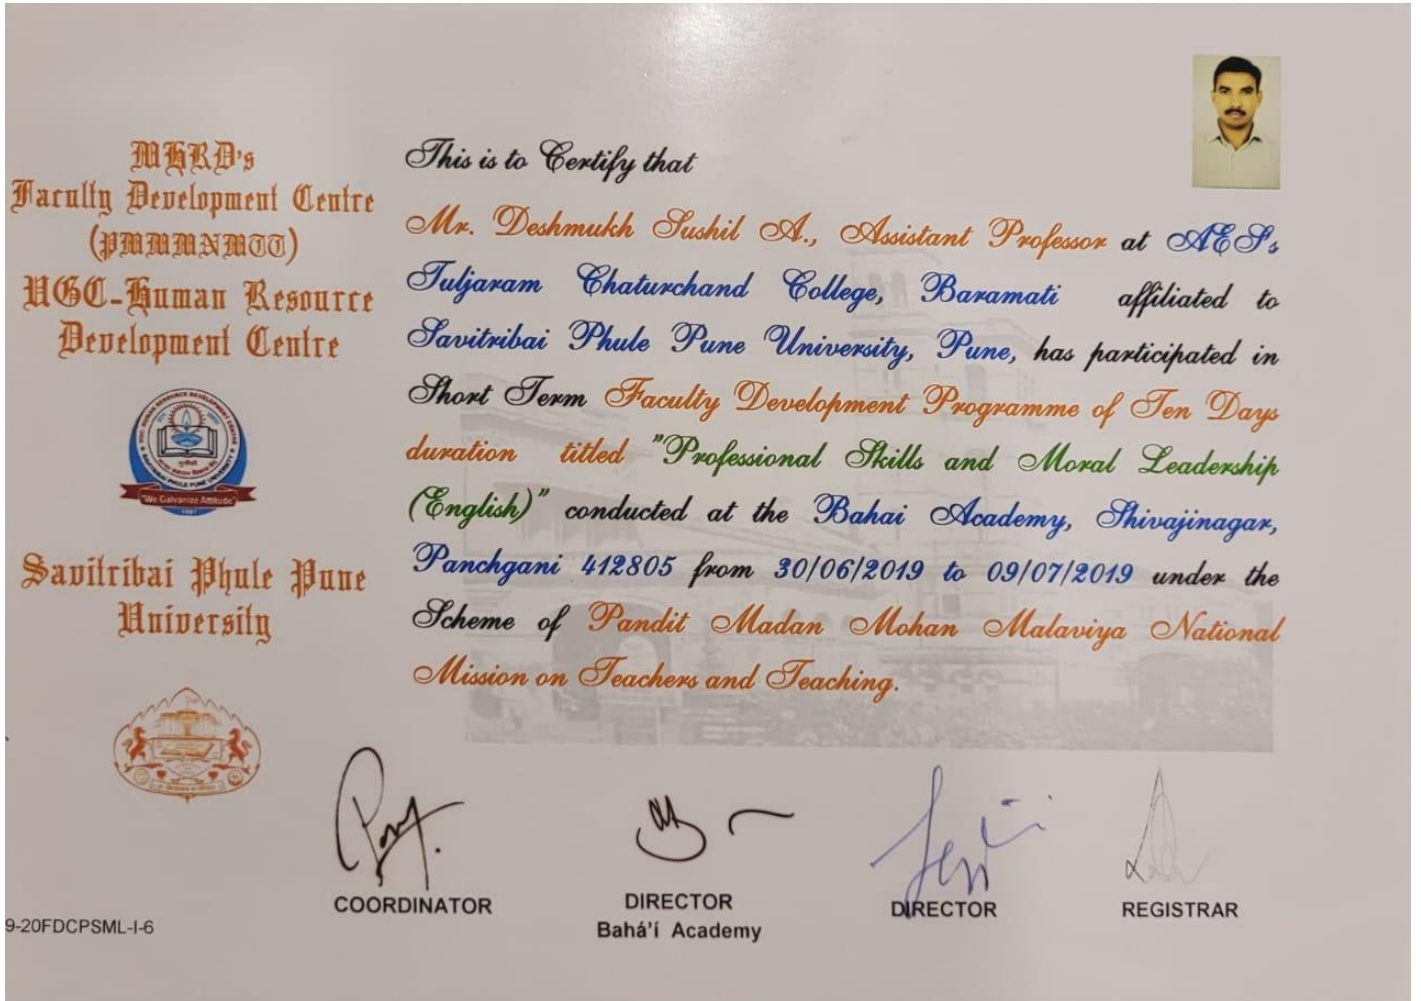 MHRD's
Faculty Development Centre
(PMMMNMTT)
UGC-Human Resource
Development Centre
"We Galvanize Attitude"
Savitribai Phule Pune
University
This is to Certify that
Mr. Deshmukh Sushil A., Assistant Professor at AES's
Tuljaram Chaturchand College, Baramati affiliated to
Savitribai Phule Pune University, Pune, has participated in
Short Term Faculty Development Programme of Ten Days
duration titled "Professional Skills and Moral Leadership
(English)" conducted at the Bahai Academy, Shivajinagar,
Panchgani 412805 from 30/06/2019 to 09/07/2019 under the
Scheme of Pandit Madan Mohan Malaviya National
Mission on Teachers and Teaching.
COORDINATOR
DIRECTOR
Bahá'í Academy
DIRECTOR
REGISTRAR
9-20FDCPSML-I-6